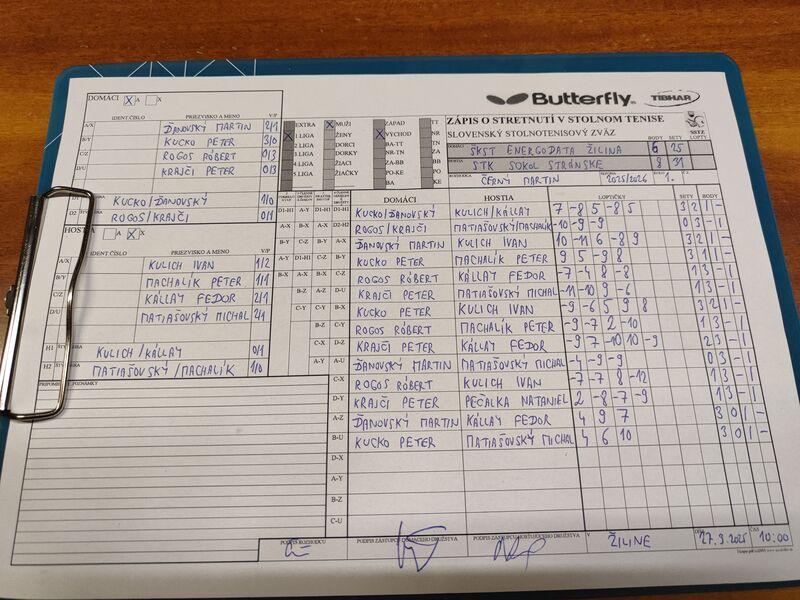 Butterfly
TIBHAR
DOMÁCI X A X
ZÁPIS O STRETNUTÍ V STOLNOM TENISE
SLOVENSKÝ STOLNOTENISOVÝ ZVÄZ
SSTZ
IDENT.ČÍSLO PRIEZVISKO A MENO V/P
A/X ĎANOVSKÝ MARTIN 2/1
B/Y KUCKO PETER 3/0
C/Z ROGOS RÓBERT 0/3
D/U KRAJČÍ PETER 0/3
D1 KUCKO/ĎANOVSKÝ 1/0
D2 ROGOS/KRAJČÍ 0/1
EXTRA MUŽI ZÁPAD TT
X 1 LIGA ŽENY X VÝCHOD NR
2 LIGA DORCI BA-TT TN
3 LIGA DORKY NR-TN ZA
4 LIGA ŽIACI ZA-BB BB
5 LIGA ŽIAČKY PO-KE PO
BA KE
BODY SETY LOPTY
SKST ENERGODATA ŽILINA 6 25
HOSTIA STK SOKOL STRÁNSKE 8 31
ROZHODCA ČERNÝ MARTIN SEZÓNA 2025/2026 1.
HOSTIA A X X
IDENT.ČÍSLO PRIEZVISKO A MENO V/P
A/X KULICH IVAN 1/2
B/Y MACHALÍK PETER 1/1
C/Z KÁLLAY FEDOR 2/1
D/U MATIAŠOVSKÝ MICHAL 2/1
H1 KULICH/KÁLLAY 0/1
H2 MATIAŠOVSKÝ/MACHALÍK 1/0
PRIPOMIENKY, POZNÁMKY
DOMÁCI HOSTIA LOPTIČKY SETY BODY
KUCKO/ĎANOVSKÝ KULICH/KÁLLAY 7 -8 5 -8 5 3 2 1 -
ROGOS/KRAJČÍ MATIAŠOVSKÝ/MACHALÍK -10 -9 -9 0 3 - 1
ĎANOVSKÝ MARTIN KULICH IVAN 10 -11 6 -8 9 3 2 1 -
KUCKO PETER MACHALÍK PETER 9 5 -9 8 3 1 1 -
ROGOS RÓBERT KÁLLAY FEDOR -7 -4 8 -8 1 3 - 1
KRAJČÍ PETER MATIAŠOVSKÝ MICHAL -11 -10 9 -6 1 3 - 1
KUCKO PETER KULICH IVAN -9 -6 5 9 8 3 2 1 -
ROGOS RÓBERT MACHALÍK PETER -9 -7 2 -10 1 3 - 1
KRAJČÍ PETER KÁLLAY FEDOR -9 -7 10 10 -9 2 3 - 1
ĎANOVSKÝ MARTIN MATIAŠOVSKÝ MICHAL -4 -9 -9 0 3 - 1
C-X ROGOS RÓBERT KULICH IVAN -7 -7 8 -12 1 3 - 1
D-Y KRAJČÍ PETER PEČALKA NATANIEL 2 -8 -7 -9 1 3 - 1
A-Z ĎANOVSKÝ MARTIN KÁLLAY FEDOR 4 9 7 3 0 1 -
B-U KUCKO PETER MATIAŠOVSKÝ MICHAL 4 6 10 3 0 1 -
D-X
A-Y
B-Z
C-U
PODPIS ROZHODCU PODPIS ZÁSTUPCU DOMÁCEHO DRUŽSTVA PODPIS ZÁSTUPCU HOSŤUJÚCEHO DRUŽSTVA V ŽILINE DŇA 27.9.2025 ČAS 10:00